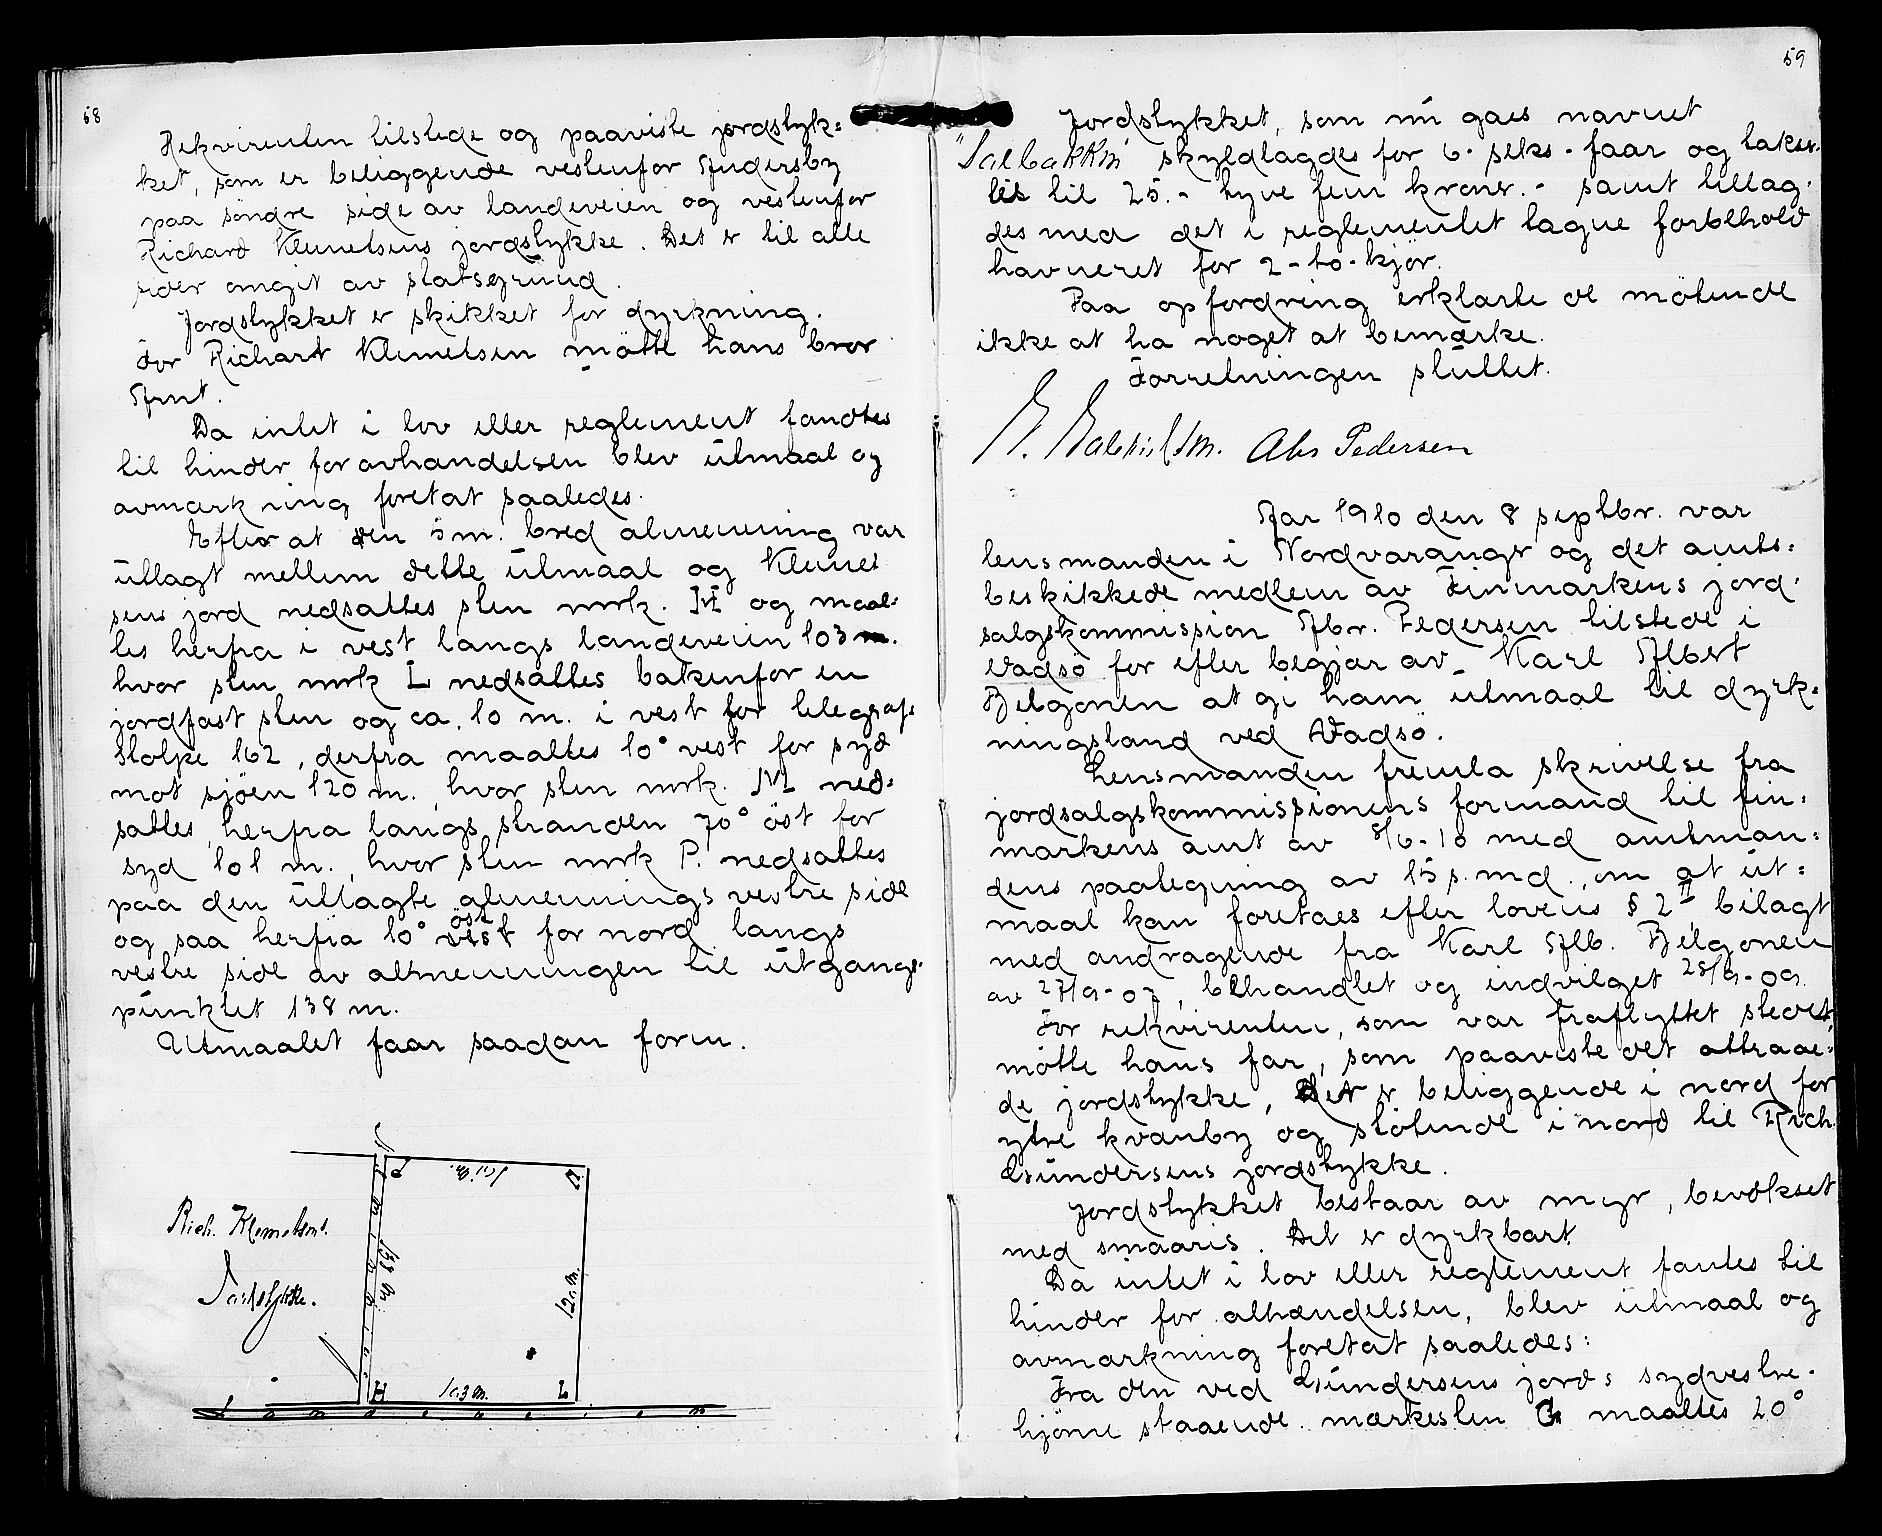 58
Rekvirenten tilstede og paaviste jordstyk=
ket, som er beliggende vestenfor Andersby
paa söndre side av landeveien og vestenfor
Richard Klemetsens jordstykke. Det er til alle
sider omgit av statsgrund.
Jordstykket er skikket for dyrkning.
For Richard Klemetsen mötte hans bror
Amt.
Da intet i lov eller reglement fandtes
til hinder for avhandelsen blev utmaal og
avmerkning foretat saaledes.
Efter at den 5 m. bred almenning var
utlagt mellem dette utmaal og Klemet
sens jord nedsattes sten mrk. H og maal-
tes herfra i vest langs landeveien 103 m.
hvor sten mrk L nedsattes bakenfor en
jordfast sten og ca. 10 m. i vest for telegraf
stolpe 162, derfra maaltes 10° vest for syd
mot sjöen 120 m., hvor sten mrk. M ned-
sattes, herfra langs stranden 70° öst for
syd 101 m., hvor sten mrk P. nedsattes
paa den utlagte almennings vestre side
og saa herfra 10° vest öst for nord langs
vestre side av almenningen til utgangs-
punktet 138 m.
Utmaalet faar saadan form.
P
101 m.
Rich. Klemetsens
Jordstykke.
138 m.
120 m.
H 103 m. L
59
Jordstykket, som nu gaes navnet
skyldlagdes for 6 - seks - faar og takser-
tes til 25.- tyve fem kroner. - samt tillag-
des med det i reglementet tagne forbehold
havneret for 2 - to - kjör.
Paa opfordring erklarte de mötende
ikke at ha noget at bemærke.
Forretningen sluttet.
Abr Pedersen
Aar 1910 den 8 septbr. var
lensmanden i Nordvaranger og det amts-
beskikkede medlem av Finmarkens jord-
salgskommission Abr. Pedersen tilstede i
Vadsö for efter begjær av Karl Albert
Bilgonen at gi ham utmaal til dyrk-
ningsland ved Vadsö.
Lensmanden fremla skrivelse fra
jordsalgskommissionens formand til Fin-
markens amt av 8/6-10 med amtman-
dens paategning av 15 s. md., om at ut=
maal kan foretaes efter lovens § 2 II bilagt
med andragende fra Karl Alb. Bilgonen
av 27/9-07, behandlet og indvilget 28/9-09.
For rekvirenten, som var fraflyttet stedet,
mötte hans far, som paaviste det attraae-
de jordstykke, Det er beliggende i nord for
ytre kvanby og stötende i nord til Rich.
Gundersens jordstykke.
Jordstykket bestaar av myr, bevokset
med smaaris. Det er dyrkbart.
Da intet i lov eller reglement fantes til
hinder for athændelsen, blev utmaal og
avmarkning foretat saaledes:
Fra den ved Gundersens jords sydvestre-
hjörne staaende mærkesten G maaltes 20°